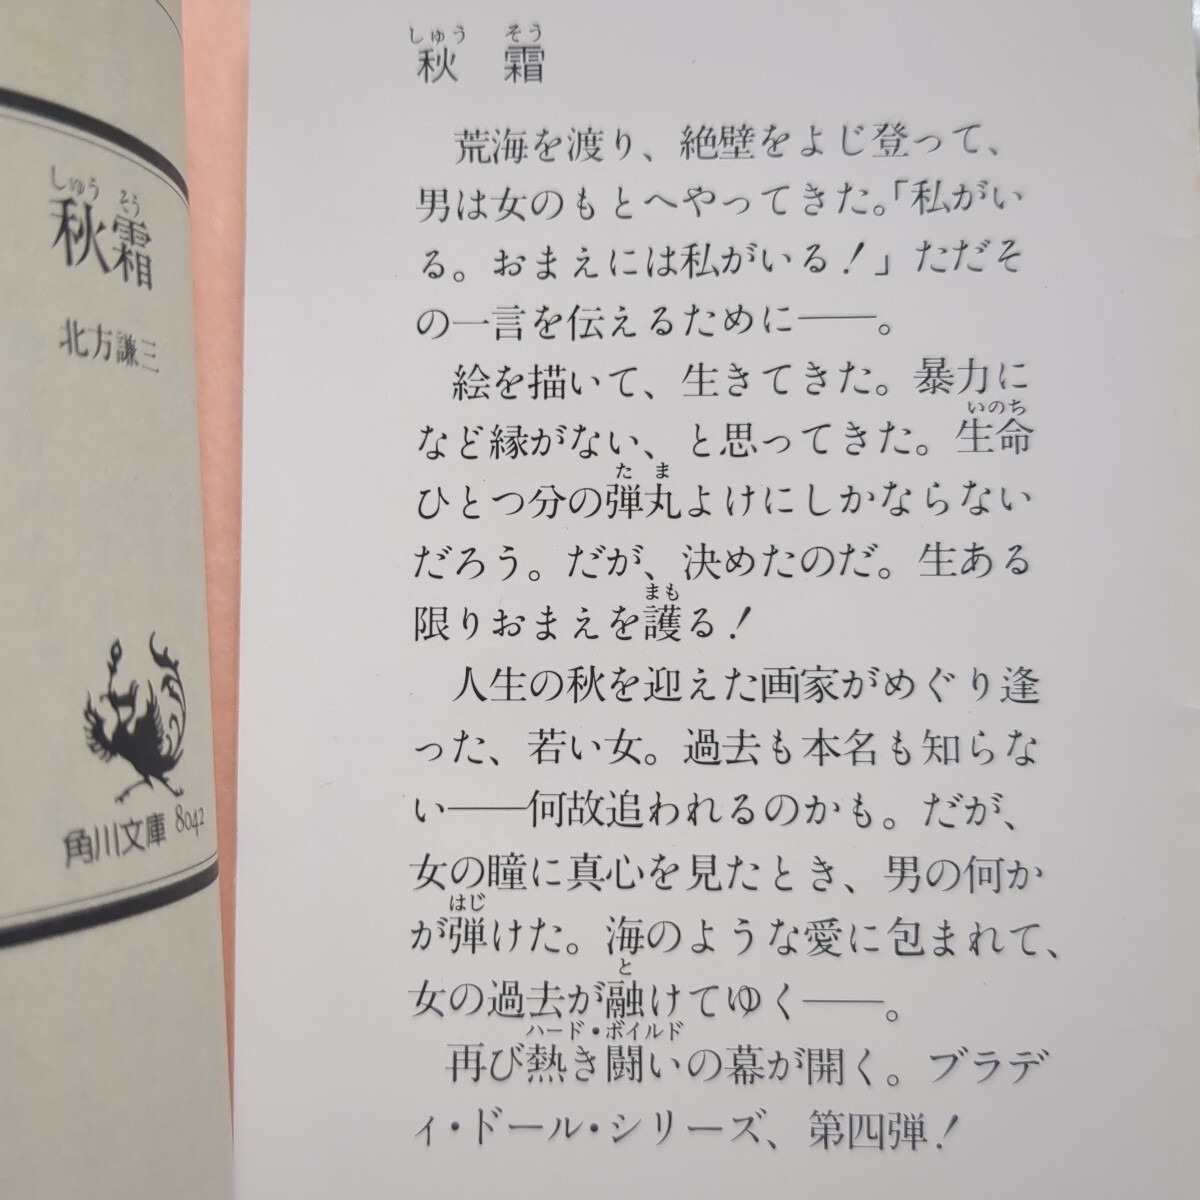 しゅうそう
秋霜
北方謙三
角川文庫 8042
しゅう そう
秋 霜
荒海を渡り、絶壁をよじ登って、
男は女のもとへやってきた。「私がい
る。おまえには私がいる!」ただそ
の一言を伝えるために——。
絵を描いて、生きてきた。暴力に
など縁がない、と思ってきた。生命
いのち
ひとつ分の弾丸よけにしかならない
たま
だろう。だが、決めたのだ。生ある
限りおまえを護る!
まも
人生の秋を迎えた画家がめぐり逢
った、若い女。過去も本名も知らな
い——何故追われるのかも。だが、
女の瞳に真心を見たとき、男の何か
が弾けた。海のような愛に包まれて、
はじ
女の過去が融けてゆく——。
と
再び熱き闘いの幕が開く。ブラデ
ハード・ボイルド
ィ・ドール・シリーズ、第四弾!